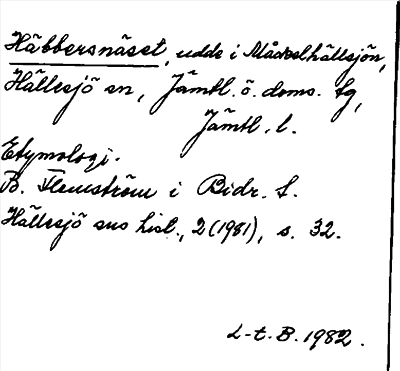 Häbbersnäset, udde i Måckelhällsjön,
Hällesjö sn, Jämtl. ö. doms. tg,
Jämtl. l.
Etymologi.
B. Flemström i Bidr. t.
Hällesjö sns hist., 2 (1981), s. 32.
L-t. B. 1982.